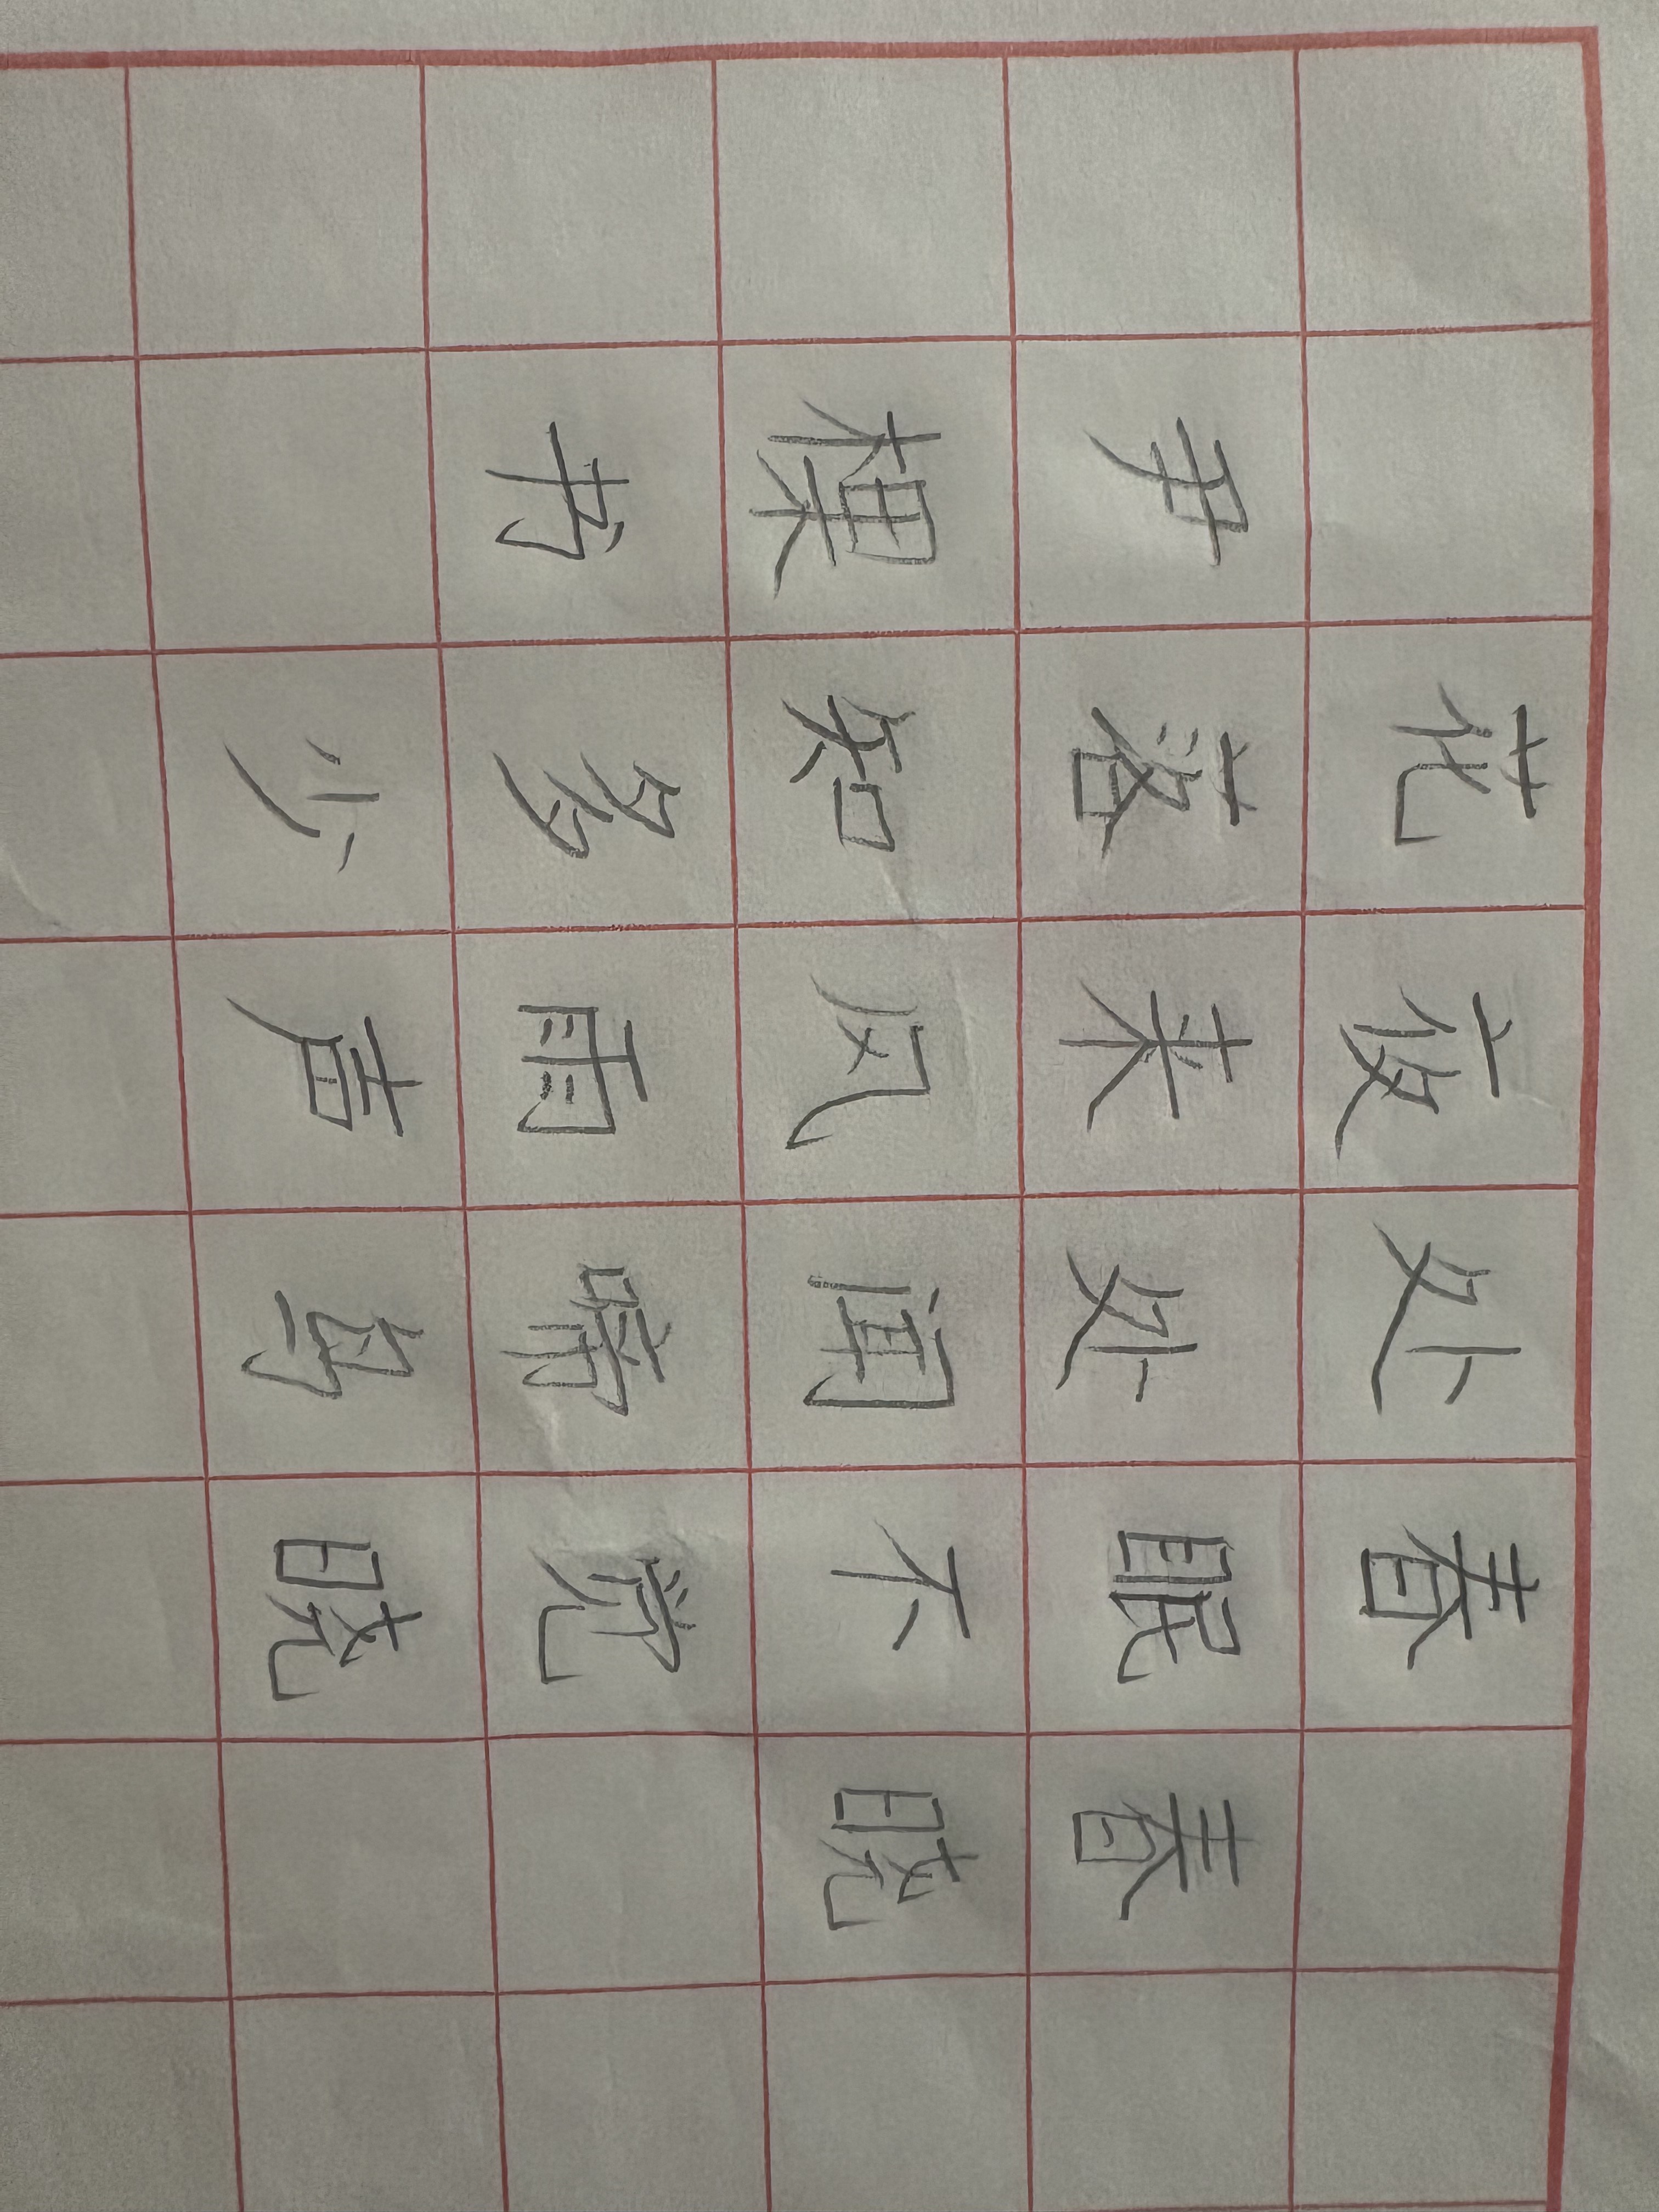 春晓
春眠不觉晓
处处闻啼鸟
夜来风雨声
花落知多少
尹棵书